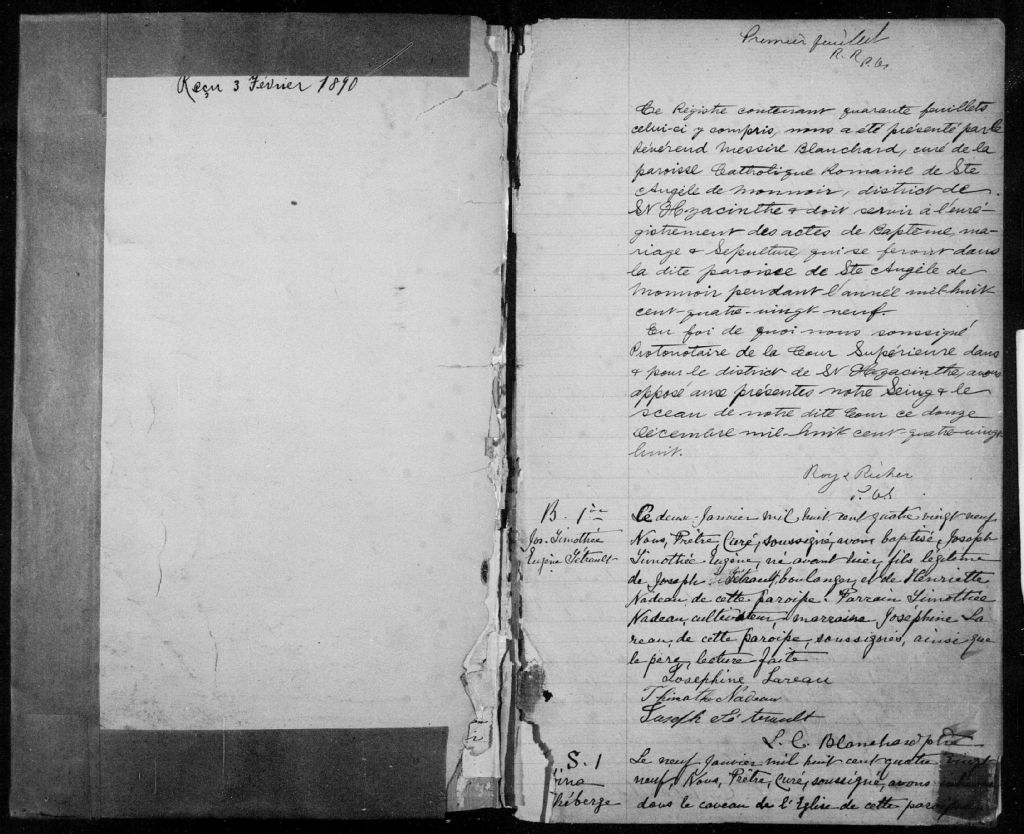 Reçu 3 Février 1890
Premier feuillet
R. R
P. Cs.
Ce Régistre contenant quarante feuillets
celui-ci y compris, nous a été présenté par le
Révérend Messire Blanchard, curé de la
paroisse Catholique Romaine de Ste
Angèle de Monnoir, district de
St Hyacinthe & doit servir à l'enré-
gistrement des actes de Baptême, ma-
riage & Sépulture, qui se feront dans
la dite paroisse de Ste Angèle de
Monnoir pendant l'année mil huit
cent quatre-vingt-neuf.
En foi de quoi nous soussigné
Protonotaire de la Cour Supérieure dans
& pour le district de St Hyacinthe, avons
apposé aux présentes notre Seing & le
sceau de notre dite Cour ce douze
décembre mil-huit cent-quatre-vingt
huit.
Roy & Richer
P. Cs.
B. 1ère
Jos. Timothée
Eugène Tétrault
Le deux Janvier mil huit cent quatre vingt neuf
Nous, Prêtre, Curé, soussigné, avons baptisé, Joseph
Timothée Eugène, né avant hier, fils légitime
de Joseph Tétrault, boulanger, et de Henriette
Nadeau, de cette paroisse. Parrain Timothée
Nadeau, cultivateur, marraine Joséphine La
reau, de cette paroisse, soussignés, ainsi que
le père, lecture faite
Josephine Lareau
Thimothé Nadeau
Joseph Té trault
L. C. Blanchard ptre
S. 1
ina
héberge
Le neuf Janvier mil huit cent quatre vingt
neuf, Nous, Prêtre, Curé, soussigné, avons
dans le caveau de l'Eglise de cette paroisse